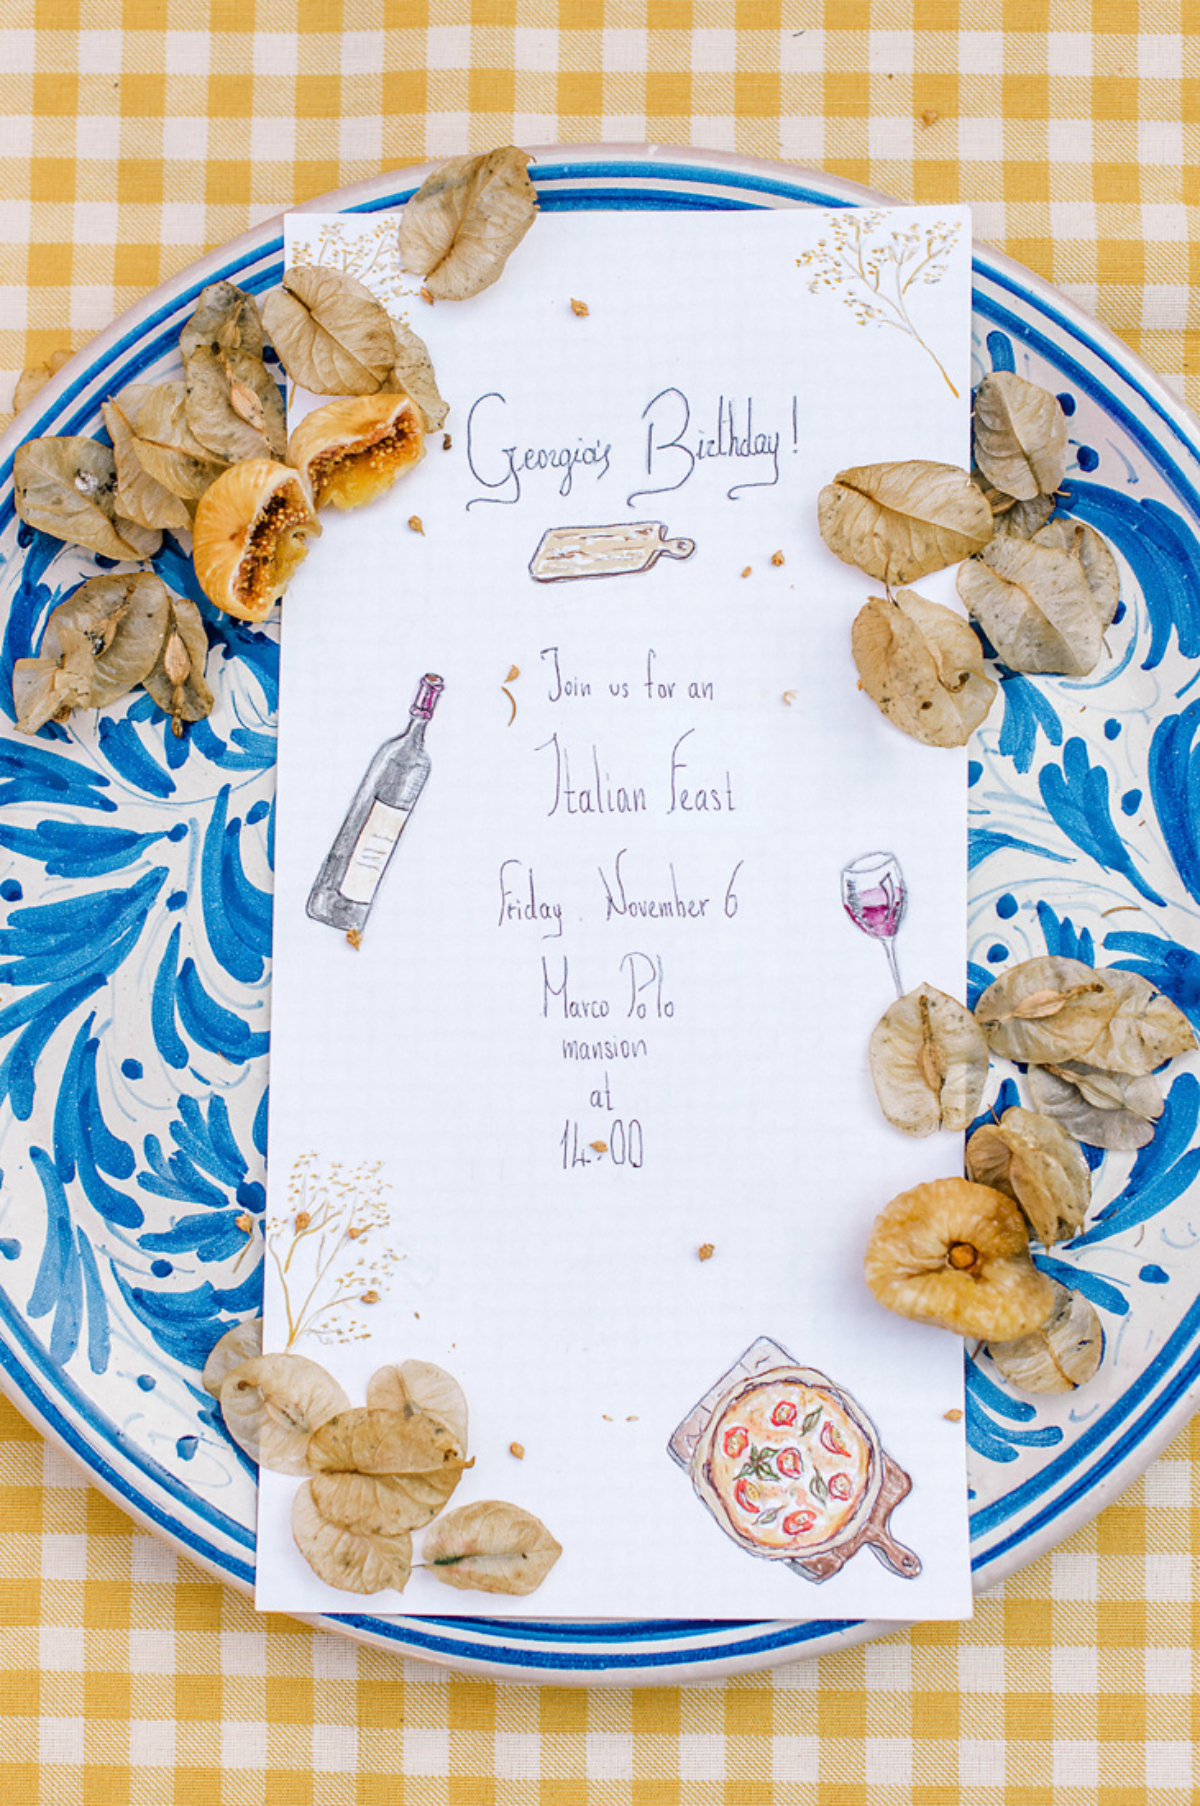 Georgia's Birthday!
Join us for an
Italian Feast
Friday. November 6
Marco Polo
mansion
at
14:00